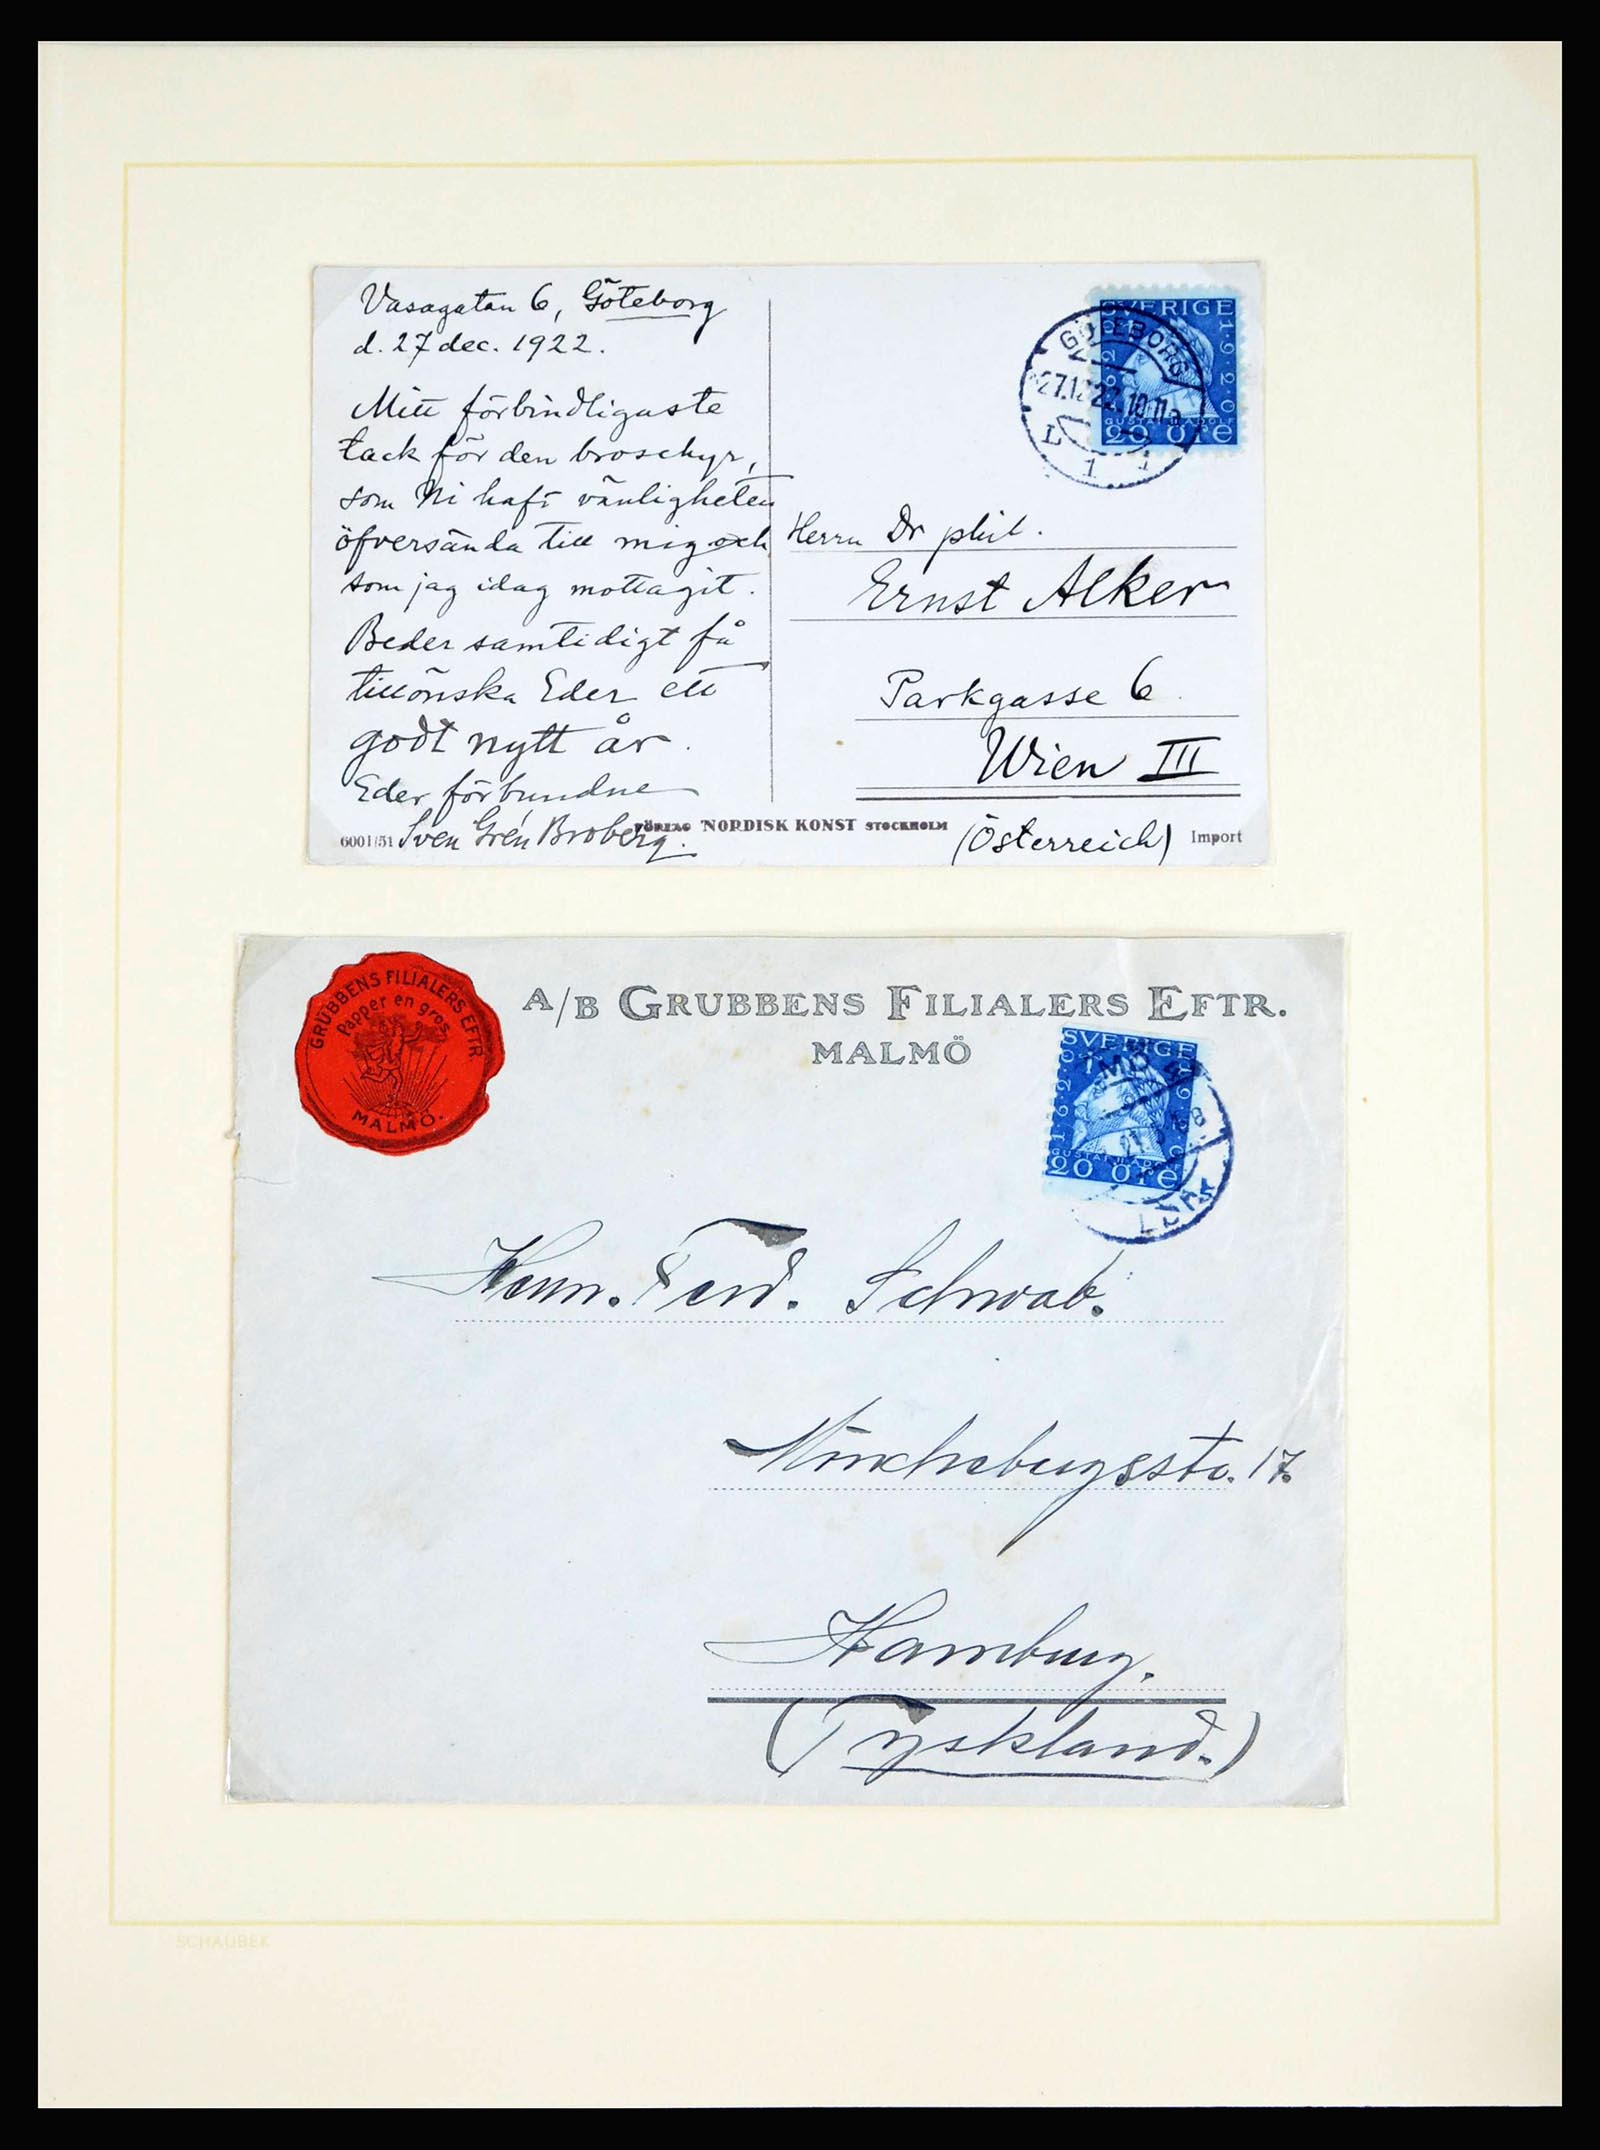 Vasagatan 6, Göteborg
d. 27 dec. 1922.
Mitt förbindligaste
tack för den broschyr,
som Ni haft vänligheten
öfversända till mig och
som jag idag mottagit.
Beder samtidigt få
tillönska Eder ett
godt nytt år.
Eder förbundne
Sven Grén Broberg.
6001/51
FÖRLAG NORDISK KONST STOCKHOLM
SVERIGE
1·9·2·0
GUSTAF II ADOLF
20 ÖRE
GÖTEBORG
27.12.22.10-11a
L 1 1
Herrn Dr phil.
Ernst Alker
Parkgasse 6
Wien III
(Österreich)
Import
GRUBBENS FILIALERS EFTR
Papper en gros
MALMÖ.
A/B GRUBBENS FILIALERS EFTR.
MALMÖ
SVERIGE
1·6·2·0
GUSTAF II ADOLF
20 ÖRE
Herrn. Ferd. Schwab.
17.
Hamburg.
(Tyskland.)
SCHAUBEK